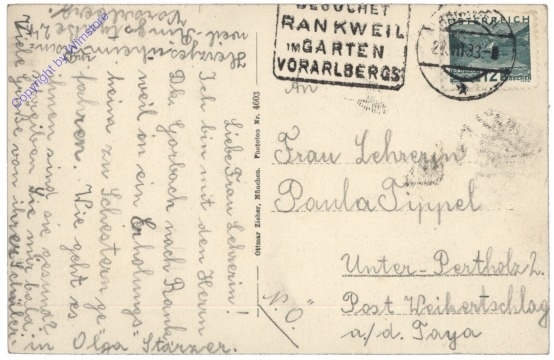 BESUCHET
RANKWEIL
IM GARTEN
VORARLBERGS
ÖSTERREICH
12
An
Frau Lehrerin
Paula Tippel
Unter-Pertholz 2.
Post Weikertschlag
a/d. Taya
"N.Ö"
Ottmar Zieher, München. Phototen Nr. 4603
Liebe Frau Lehrerin!
Ich bin mit den Herrn
Dk. Gorbach nach Rank-
weil in ein Erholungs-
heim zu Schestern ge-
fahren. Wie geht es
ihnen sind sie gesund.
Schreiben Sie mir bald.
Viele Grüße von ihrer Schülerin
Olga Starzer.
Copyright by Wimstore